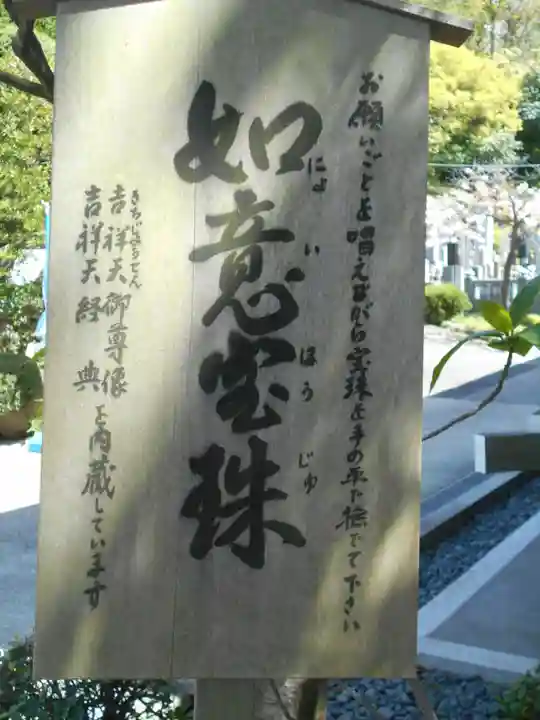 お願いごとを唱えながら宝珠を手の平で撫でて下さい
如意宝珠
にょいほうじゅ
きちじょうてん
吉祥天御尊像
吉祥天経典
を内蔵しています